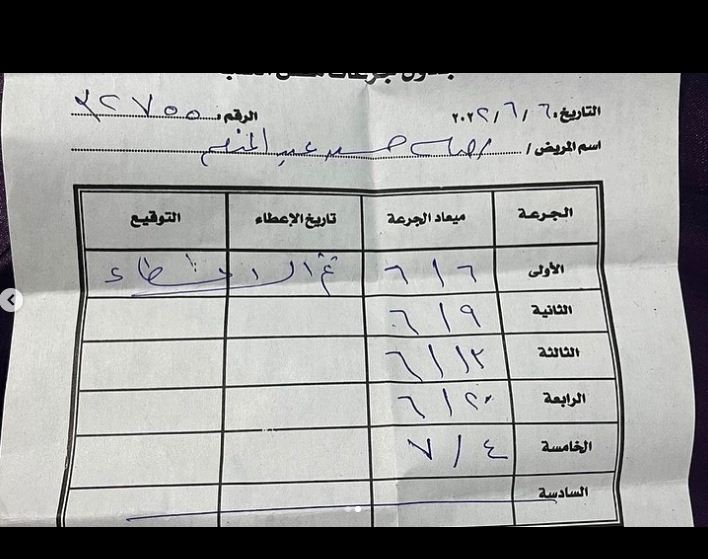 جدول جرعات مصل
التاريخ: ٦/٦/٢٠٢٢ الرقم:
اسم المريض/ عبد المنعم
الجرعة ميعاد الجرعة تاريخ الإعطاء التوقيع
الأولى ٦/٦ تم الاعطاء
الثانية ٩/٦
الثالثة ١٣/٦
الرابعة ٢٠/٦
الخامسة ٤/٧
السادسة